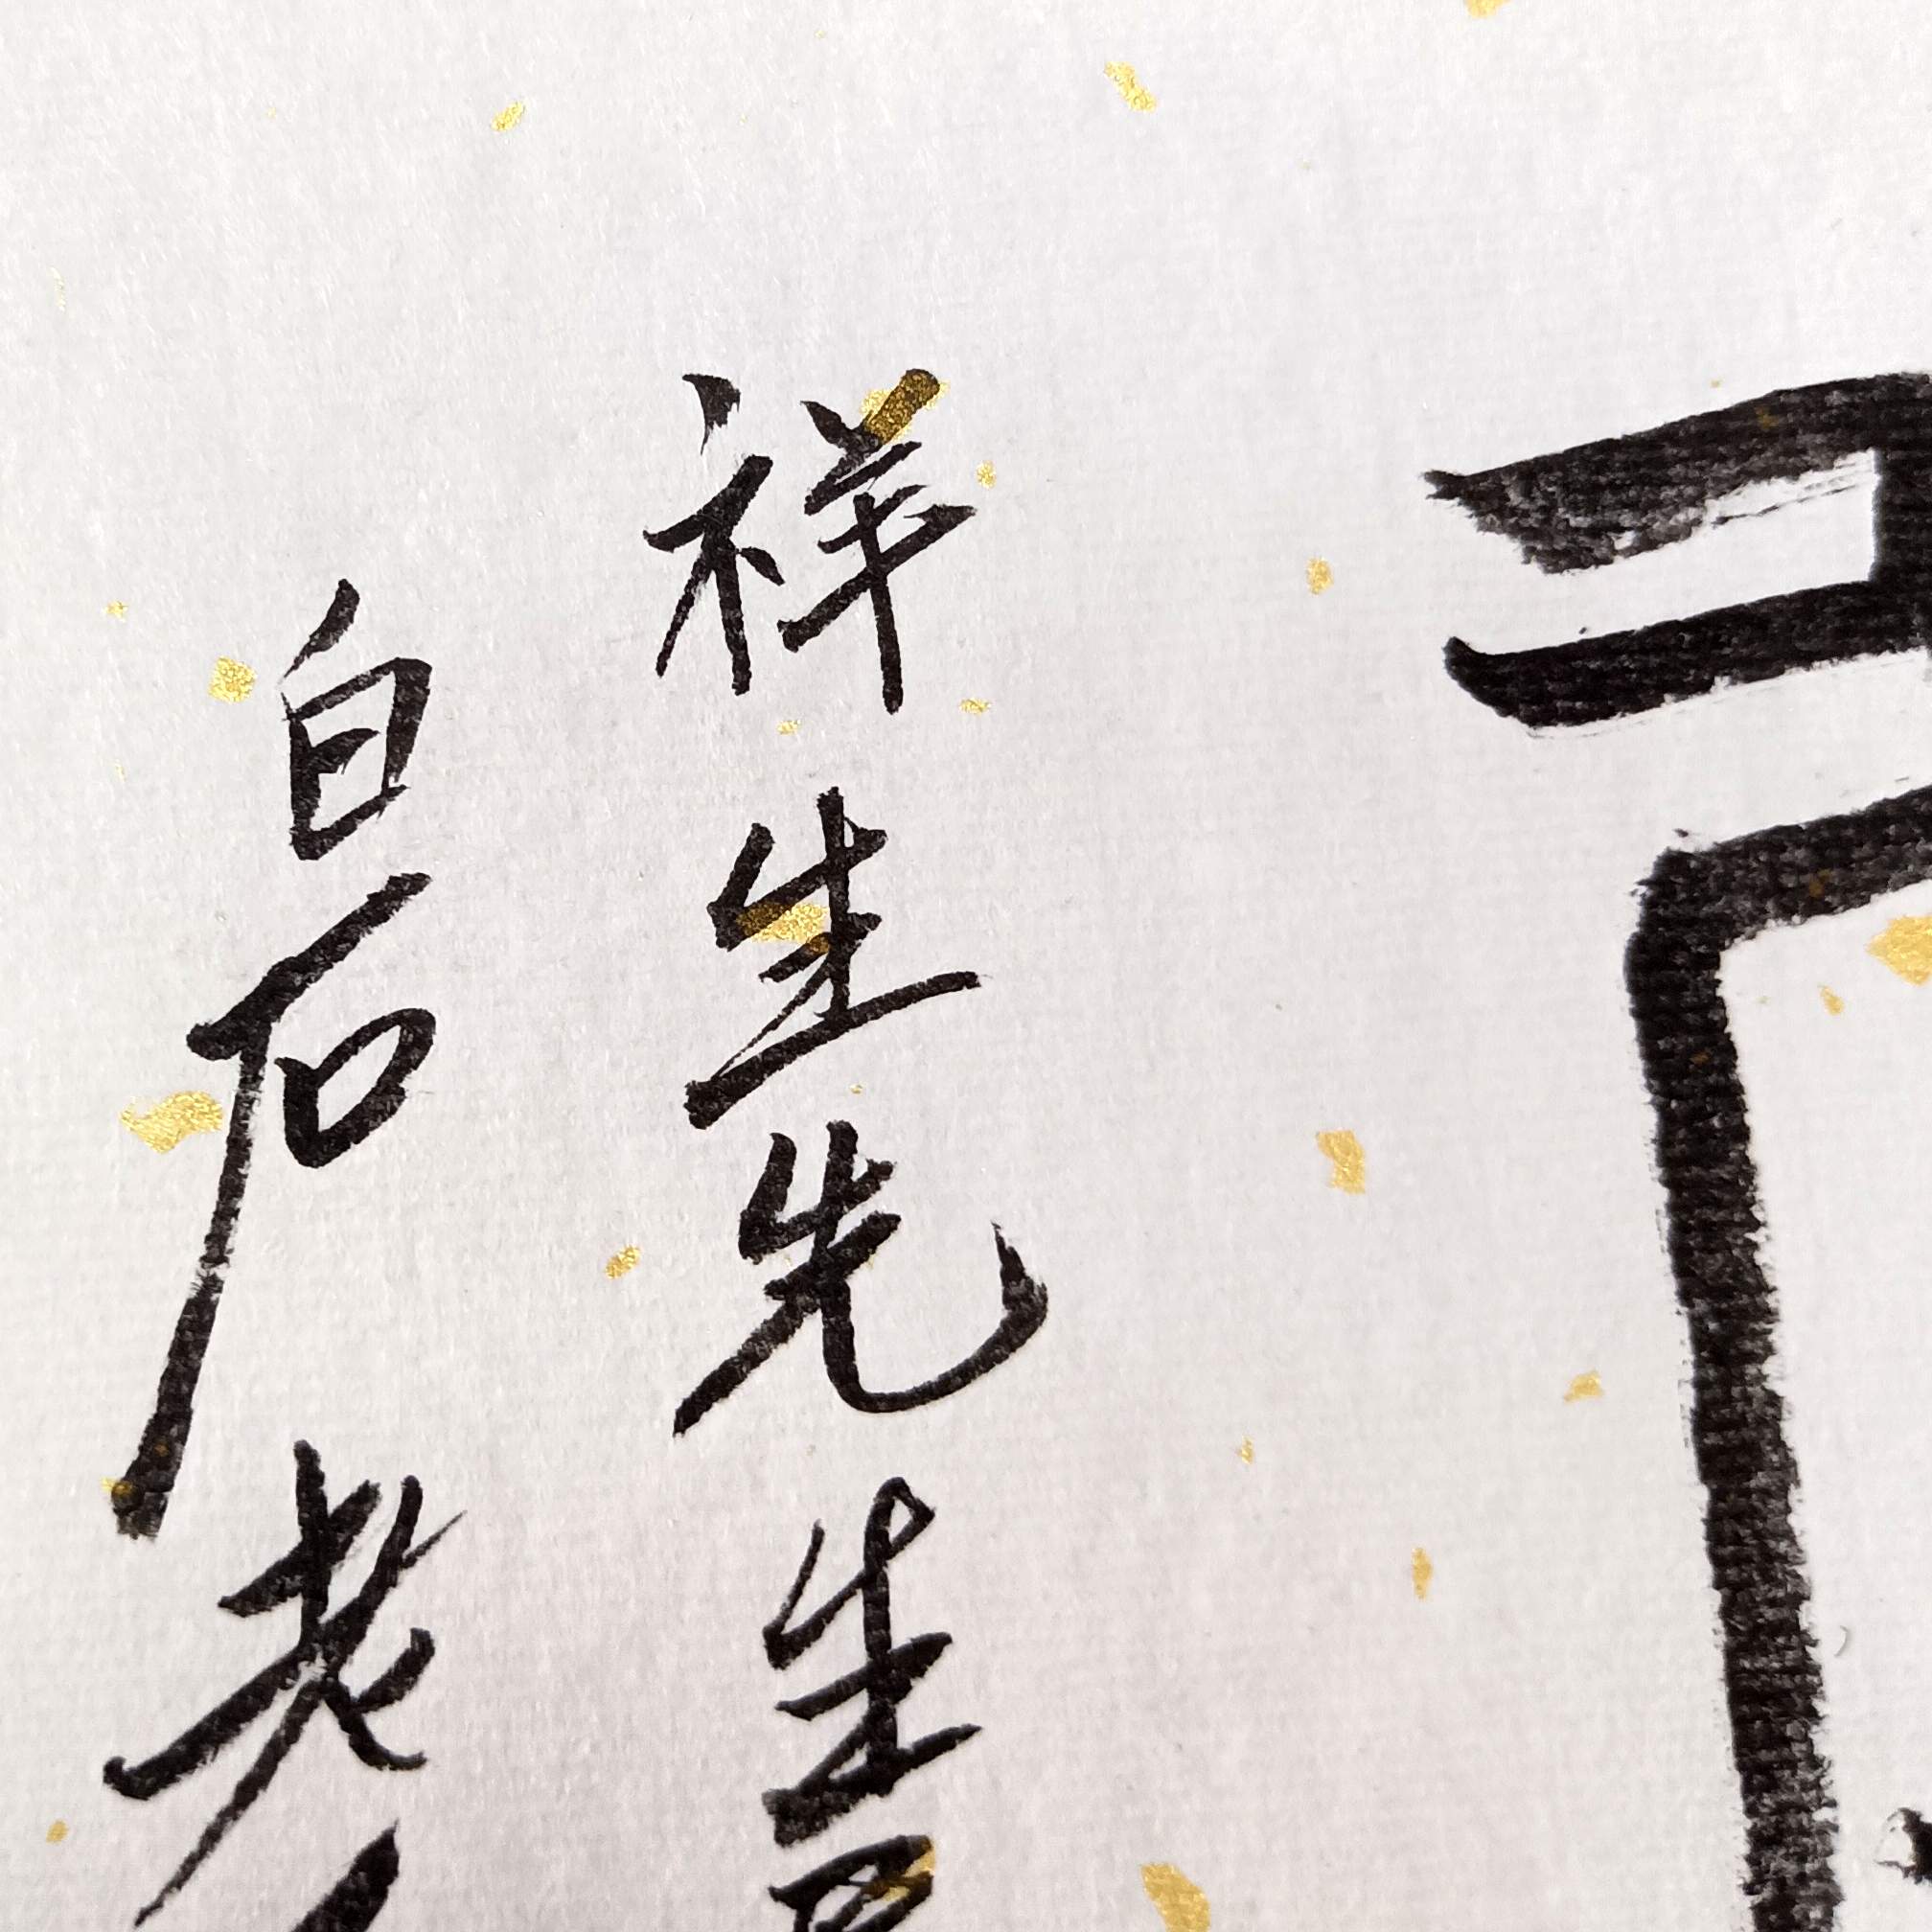 祥生先生
白石老